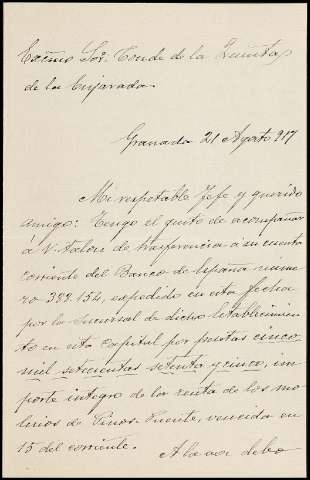 Excmo Sor. Conde de la Quinta
de la Enjarada.
Granada 21 Agosto 917
Mi respetable Jefe y querido
amigo: Tengo el gusto de acompañar
á V. talon de trasferencia á su cuenta
corriente del Banco de España núme
ro 392.154, expedido en esta fecha
por la Sucursal de dicho Establecimien
to en esta Capital por pesetas cinco
mil setecientas setenta y cinco, im
porte integro de la renta de los mo
linos de Pinos-Puente, vencida en
15 del corriente.
A la vez debo